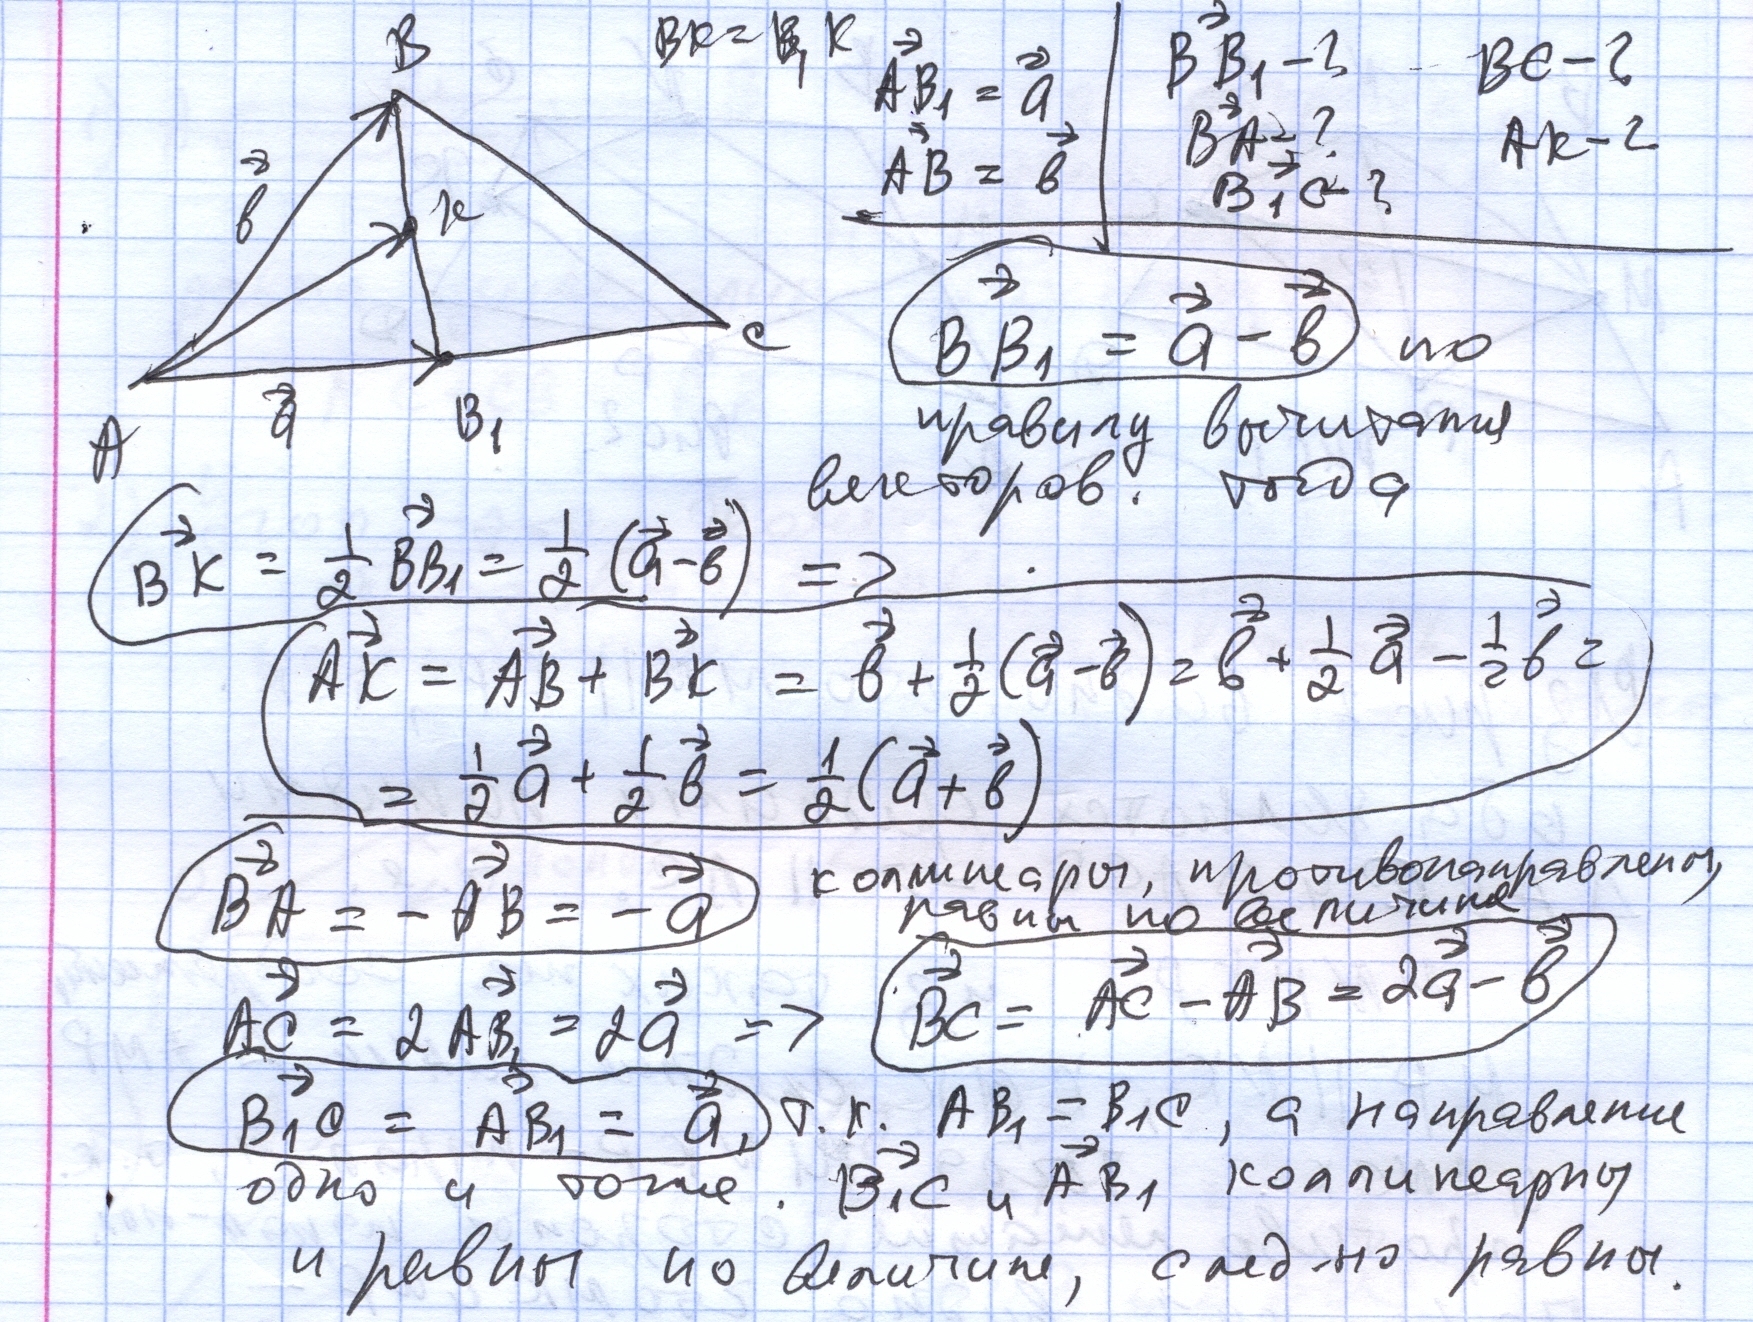 B
BK = B₁K
AB₁⃗ = a⃗
AB⃗ = b⃗
BB₁⃗ - ?
BC - ?
BA⃗ - ?
AK - ?
B₁C⃗ - ?
b⃗
K
C
a⃗
B₁
A
BB₁⃗ = a⃗ - b⃗ по
правилу вычитания
векторов. Тогда
BK⃗ = 1/2 BB₁⃗ = 1/2 (a⃗ - b⃗) =>
AK⃗ = AB⃗ + BK⃗ = b⃗ + 1/2 (a⃗ - b⃗) = b⃗ + 1/2 a⃗ - 1/2 b⃗ =
= 1/2 a⃗ + 1/2 b⃗ = 1/2 (a⃗ + b⃗)
BA⃗ = - AB⃗ = - a⃗
коллинеары, противонаправлены,
равны по величине
AC⃗ = 2AB₁⃗ = 2a⃗ =>
BC⃗ = AC⃗ - AB⃗ = 2a⃗ - b⃗
B₁C⃗ = AB₁⃗ = a⃗, т.к. AB₁ = B₁C, а направление
одно и тоже. B₁C⃗ и AB₁⃗ коллинеарны
и равны по величине, след-но равны.